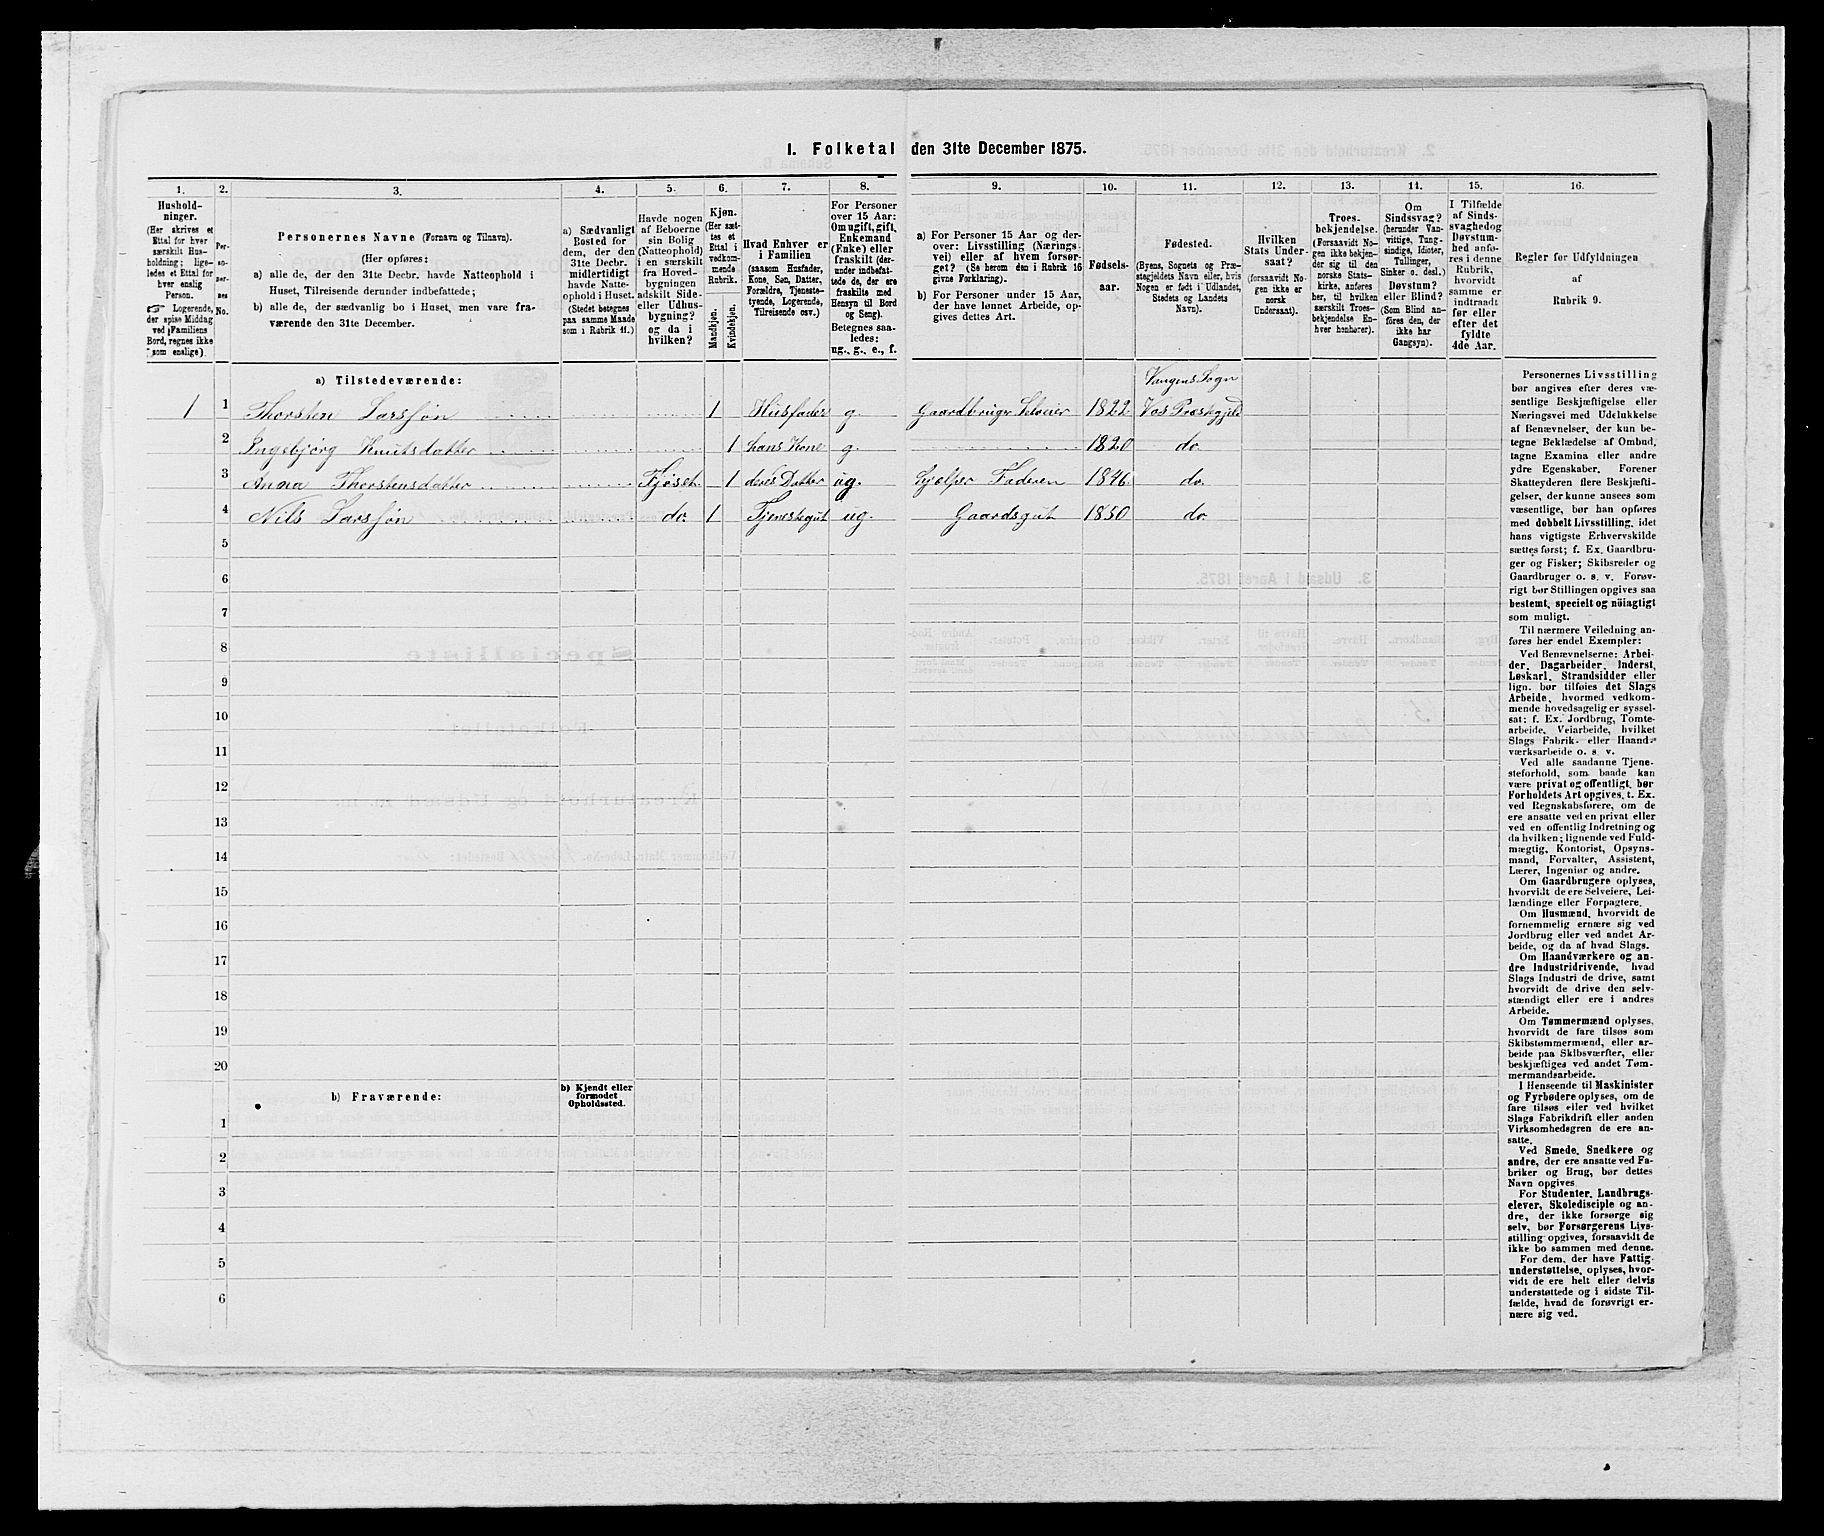 I. Folketal den 31te December 1875.
1. 2. 3. 4. 5. 6. 7. 8. 9. 10. 11. 12. 13. 14. 15. 16.
Hushold-
ninger.
(Her skrives et
Ettal for hver
særskilt Hus-
holdning; lige-
ledes et Ettal for
hver enslig
Person.
☞ Logerende,
der spise Middag
ved Familiens
Bord, regnes ikke
som enslige).
Per-
so-
ner-
nes
No.
Personernes Navne (Fornavn og Tilnavn).
(Her opføres:
a) alle de, der den 31te Decbr. havde Natteophold i
Huset, Tilreisende derunder indbefattede;
b) alle de, der sædvanlig bo i Huset, men vare fra-
værende den 31te December.
a) Sædvanligt
Bosted for
dem, der den
31te Decbr.
midlertidigt
havde Natte-
ophold i Huset.
(Stedet betegnes
paa samme Maade
som i Rubrik 11.)
Havde nogen
af Beboerne
sin Bolig
(Natteophold)
i en særskilt
fra Hoved-
bygningen
adskilt Side-
eller Udhus-
bygning?
og da i
hvilken?
Kjøn.
(Her sæt-
tes et
Ettal i
vedkom-
mende
Rubrik.
Mandkjøn.
Kvindekjøn.
Hvad Enhver er
i Familien
(saasom Husfader,
Kone, Søn, Datter,
Forældre, Tjeneste-
tyende, Logerende,
Tilreisende osv.)
For Personer
over 15 Aar:
Om ugift, gift,
Enkemand
(Enke) eller
fraskilt (der-
under indbefat-
tede de, der ere
fraskilte med
Hensyn til Bord
og Seng).
Betegnes saa-
ledes:
ug., g., e., f.
a) For Personer 15 Aar og der-
over: Livsstilling (Nærings-
vei) eller af hvem forsør-
get? (Se herom den i Rubrik 16
givne Forklaring).
b) For Personer under 15 Aar,
der have lønnet Arbeide, op-
gives dettes Art.
Fødsels-
aar.
Fødested.
(Byens, Sognets og Præ-
stegjeldets Navn eller, hvis
Nogen er født i Udlandet,
Stedets og Landets
Navn).
Hvilken
Stats Under-
saat?
(forsaavidt No-
gen ikke er
norsk
Undersaat).
Troes-
bekjendelse.
(Forsaavidt No-
gen ikke bekjen-
der sig til den
norske Stats-
kirke, anføres
her, til hvilken
særskilt Troes-
bekjendelse En-
hver henhører).
Om
Sindssvag?
(herunder Van-
vittige, Tung-
sindige, Idioter,
Tullinger,
Sinker o. desl.)
Døvstum?
eller Blind?
(Som Blind an-
føres den, der
ikke har
Gangsyn).
I Tilfælde
af Sinds-
svaghedog
Døvstum-
hed anfø-
res i denne
Rubrik,
hvorvidt
samme er
indtraadt
før eller
efter det
fyldte
4de Aar.
Regler for Udfyldningen
af
Rubrik 9.
a) Tilstedeværende:
Vangens Sogn
1 1 Thorsten Larssøn 1 Husfader g. Gaardbruger Selveier 1822 Vos Præstegjeld
2 Ingebjørg Knutsdatter 1 hans Kone g. 1820 do.
3 Anna Thorstensdatter Fjøset 1 deres Datter ug. hjelper Faderen 1846 do.
4 Nils Larssøn do. 1 Tjenestegut ug. Gaardsgut 1850 do.
5
6
7
8
9
10
11
12
13
14
15
16
17
18
19
20
b) Fraværende:
b) Kjendt eller
formodet
Opholdssted.
1
2
3
4
5
6
Personernes Livsstilling
bør angives efter deres væ-
sentlige Beskjæftigelse eller
Næringsvei med Udelukkelse
af Benævnelser, der kun be-
tegne Beklædelse af Ombud,
tagne Examina eller andre
ydre Egenskaber. Forener
Skatteyderen flere Beskjæfti-
gelser, der kunne ansees som
væsentlige, bør han opføres
med dobbelt Livsstilling, idet
hans vigtigste Erhvervskilde
sættes først; f. Ex. Gaardbru-
ger og Fisker; Skibsreder og
Gaardbruger o. s. v. Forøv-
rigt bør Stillingen opgives saa
bestemt, specielt og nöiagtigt
som muligt.
Til nærmere Veiledning an-
føres her endel Exempler:
Ved Benævnelserne: Arbei-
der, Dagarbeider, Inderst,
Løskarl, Strandsidder eller
lign. bør tilføies det Slags
Arbeide, hvormed vedkom-
mende hovedsagelig er syssel-
sat; f. Ex. Jordbrug, Tomte-
arbeide, Veiarbeide, hvilket
Slags Fabrik- eller Haand-
værksarbeide o. s. v.
Ved alle saadanne Tjene-
steforhold, som baade kan
være privat og offentligt, bør
Forholdets Art opgives, t. Ex.
ved Regnskabsførere, om de
ere ansatte ved en privat eller
ved en offentlig Indretning og
da hvilken; lignende ved Fuld-
mægtig, Kontorist, Opsyns-
mand, Forvalter, Assistent,
Lærer, Ingeniør og andre.
Om Gaardbrugere oplyses,
hvorvidt de ere Selveiere, Lei-
lændinge eller Forpagtere.
Om Husmænd, hvorvidt de
fornemmelig ernære sig ved
Jordbrug eller ved andet Ar-
beide, og da af hvad Slags.
Om Haandværkere og an-
dre Industridrivende, hvad
Slags Industri de drive, samt
hvorvidt de drive den selv-
stændigt eller ere i andres
Arbeide.
Om Tømmermænd oplyses,
hvorvidt de fare tilsøs som
Skibstømmermænd, eller ar-
beide paa Skibsværfter, eller
beskjæftiges ved andet Tøm-
mermandsarbeide.
I Henseende til Maskinister
og Fyrbødere oplyses, om de
fare tilsøs eller ved hvilket
Slags Fabrikdrift eller anden
Virksomhedsgren de ere an-
satte.
Ved Smede, Snedkere og
andre, der ere ansatte ved Fa-
briker og Brug, bør dettes
Navn opgives
For Studenter, Landbrugs-
elever, Skoledisciple og an-
dre, der ikke forsørge sig
selv, bør Forsørgerens Livs-
stilling opgives, forsaavidt de
ikke bo sammen med denne.
For dem, der have Fattig-
understøttelse, oplyses, hvor-
vidt de ere helt eller delvis
understøttede og i sidste Til-
fælde, hvad de forøvrigt er-
nære sig ved.